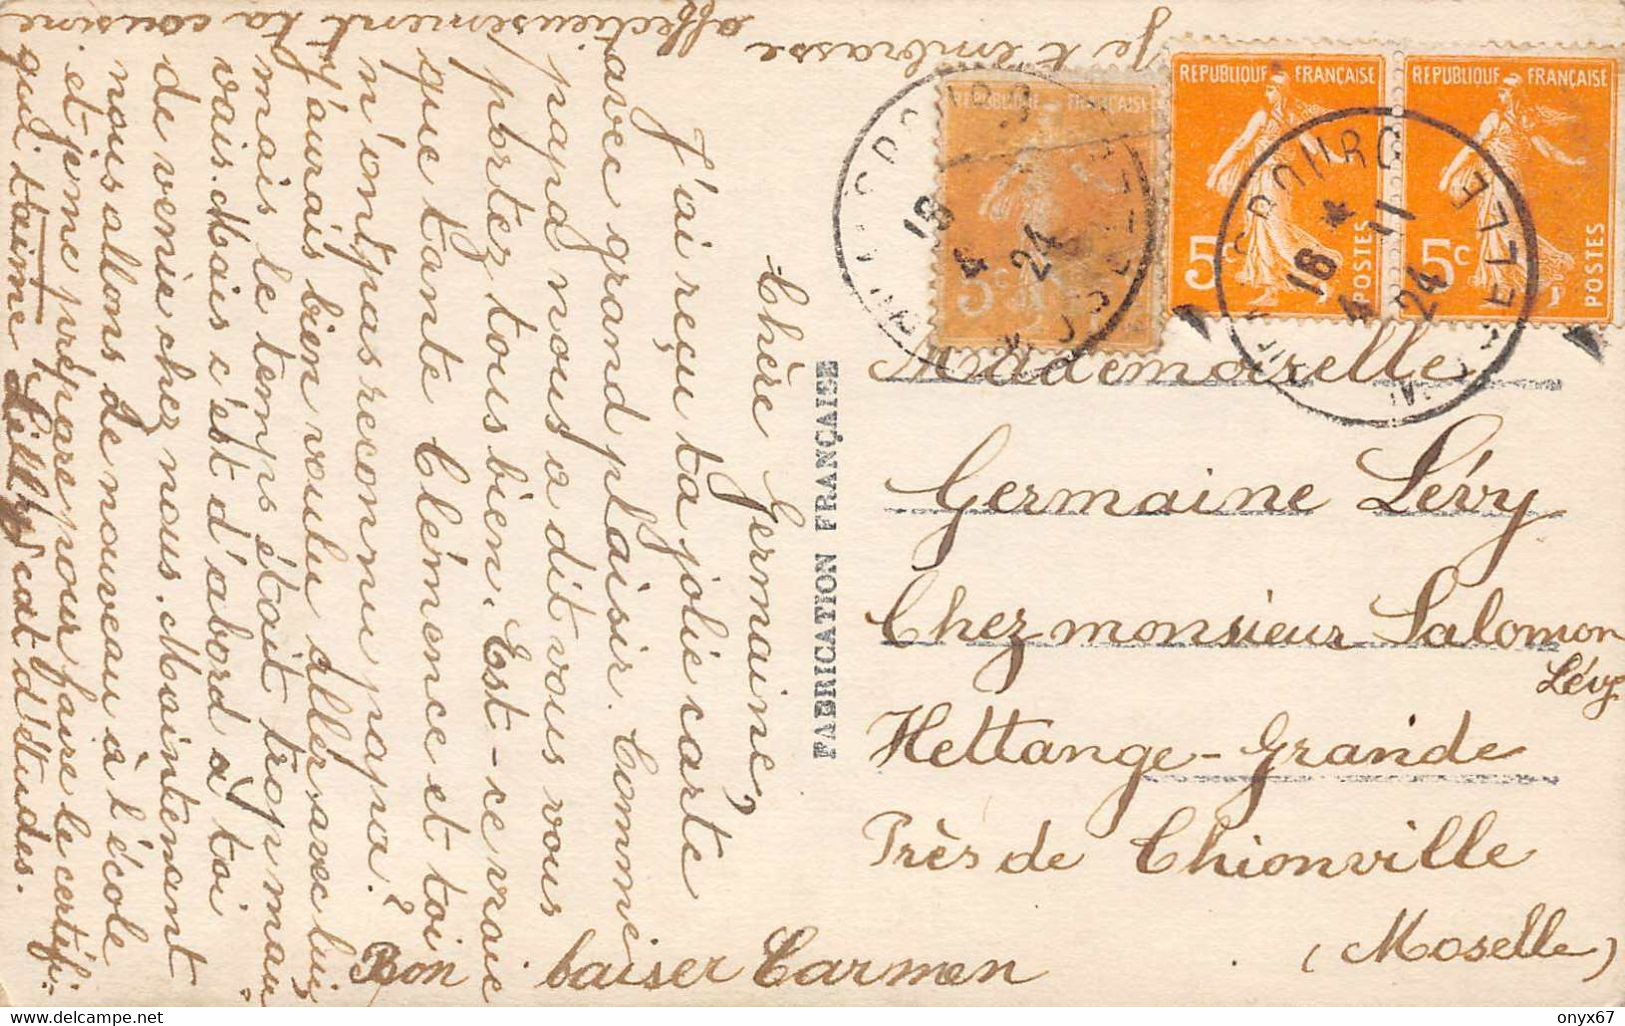 Chère Germaine,
J'ai reçu ta jolie carte
avec grand plaisir. Comme
papa nous a dit vous
portez tous bien. Est-ce vrai
que tante Clémence et toi
n'ont pas reconnu papa?
J'aurais bien voulu aller avec lui
mais le temps était trop mau-
vais. Mais c'est d'abord à toi
de venir chez nous. Maintenant
nous allons de nouveau à l'école
et je me prépare pour faire le certifi-
cat d'Etudes.
Je t'embrasse
affectieusement ta cousine
qui t'aime Lilly
Bon baiser Carmen
FABRICATION FRANÇAISE
REPUBLIQUE FRANÇAISE
5c
POSTES
REPUBLIQUE FRANÇAISE
5c
POSTES
FRANÇAISE
5c
18
4
24
18 * 11
4 24
MOSELLE
Mademoiselle
Germaine Lévy
Chez monsieur Salomon
Lévy
Hettange-Grande
Près de Thionville
(Moselle)
delcampe.net
onyx67